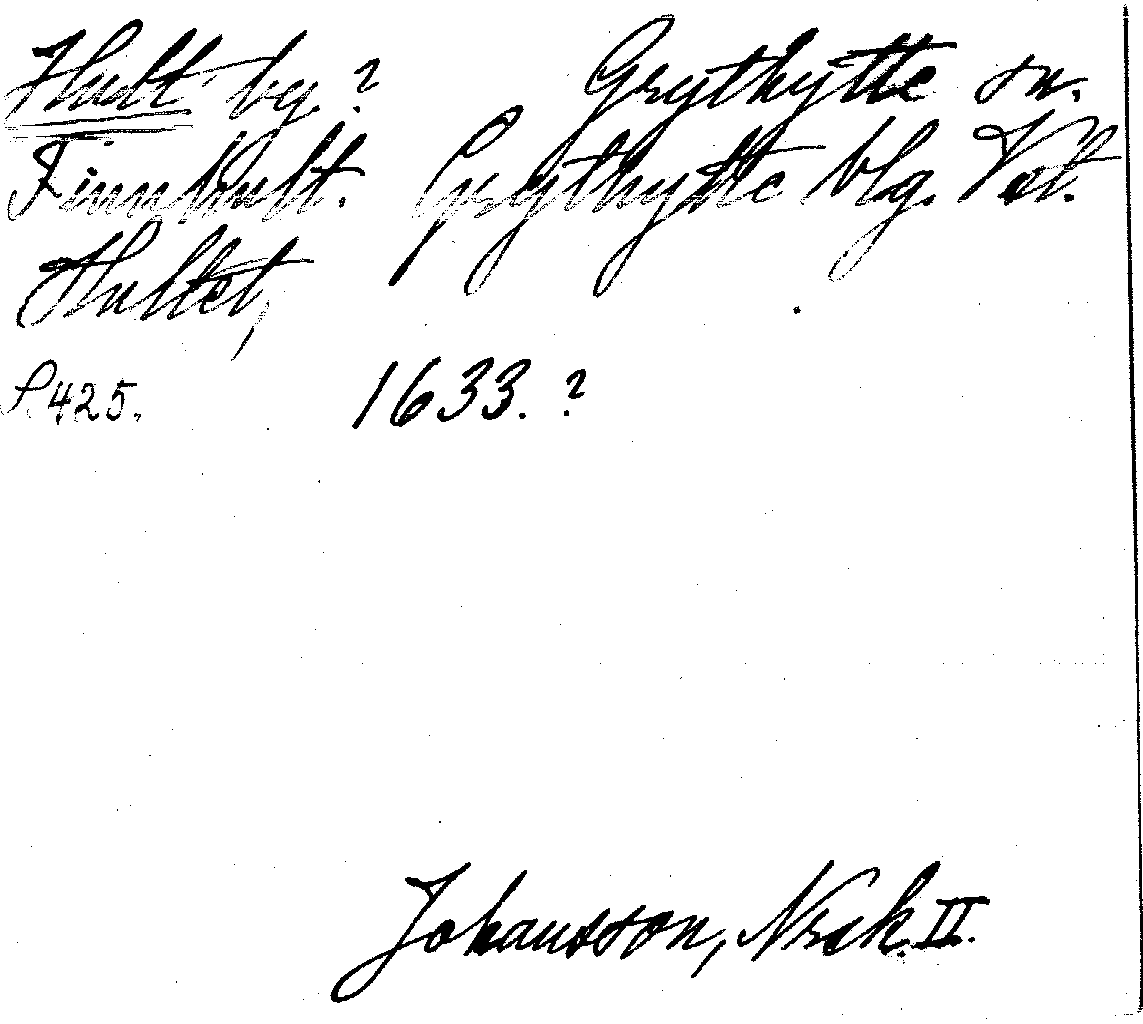 Hult bg.? Grythytte sn.
Finnhult. Grythytte blg. Vstl.
Hultet,
S. 425. 1633.?
Johansson, Nrsk. II.